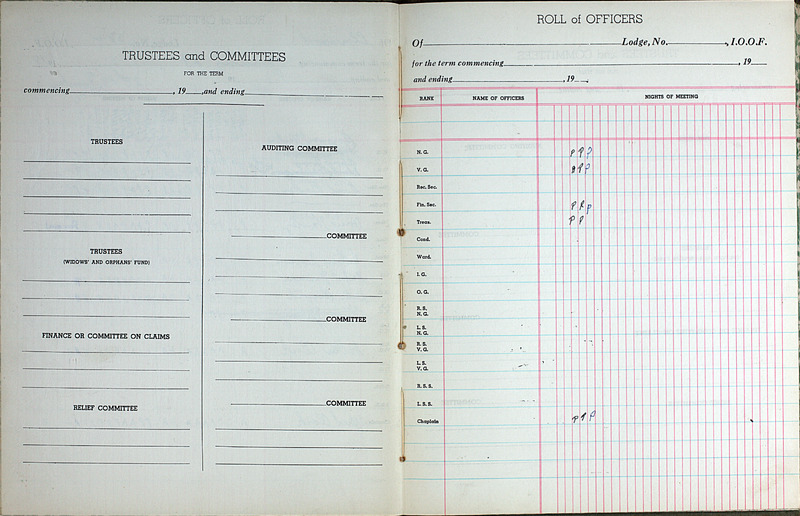 TRUSTEES and COMMITTEES
FOR THE TERM
commencing, 19, and ending
TRUSTEES
TRUSTEES
(WIDOWS' AND ORPHANS' FUND)
FINANCE OR COMMITTEE ON CLAIMS
RELIEF COMMITTEE
AUDITING COMMITTEE
COMMITTEE
COMMITTEE
COMMITTEE
ROLL of OFFICERS
Of Lodge, No. , I.O.O.F.
for the term commencing , 19
and ending , 19 ,
RANK NAME OF OFFICERS NIGHTS OF MEETING
N. G. P P P
V. G. P P P
Rec. Sec.
Fin. Sec. P P P
Treas. P P
Cond.
Ward.
I. G.
O. G.
R. S.
N. G.
L. S.
N. G.
R. S.
V. G.
L. S.
V. G.
R. S. S.
L. S. S.
Chaplain P P P